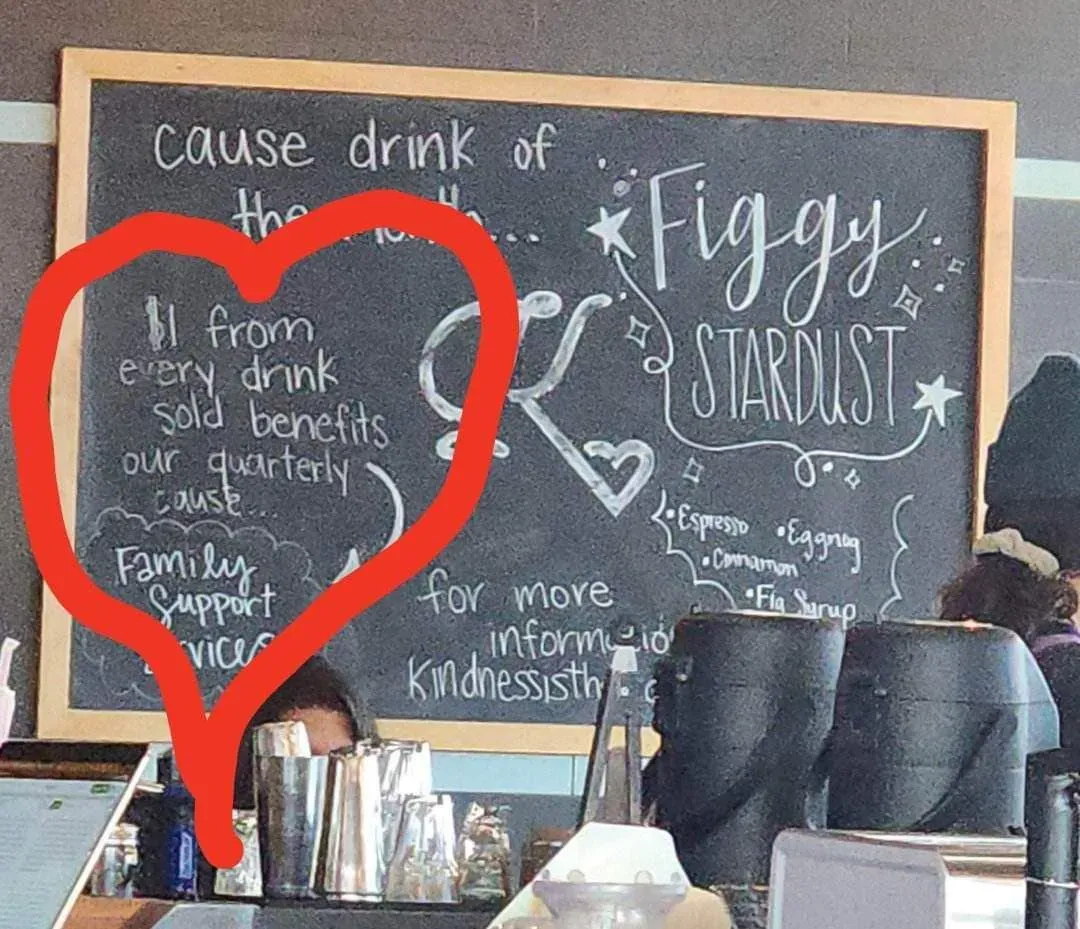 cause drink of
the
...
$1 from
every drink
sold benefits
our quarterly
cause...
Family
Support
Figgy
STARDUST
•Espresso •Eggnog
•Cinnamon
•Fig Syrup
for more
Kindnessisth